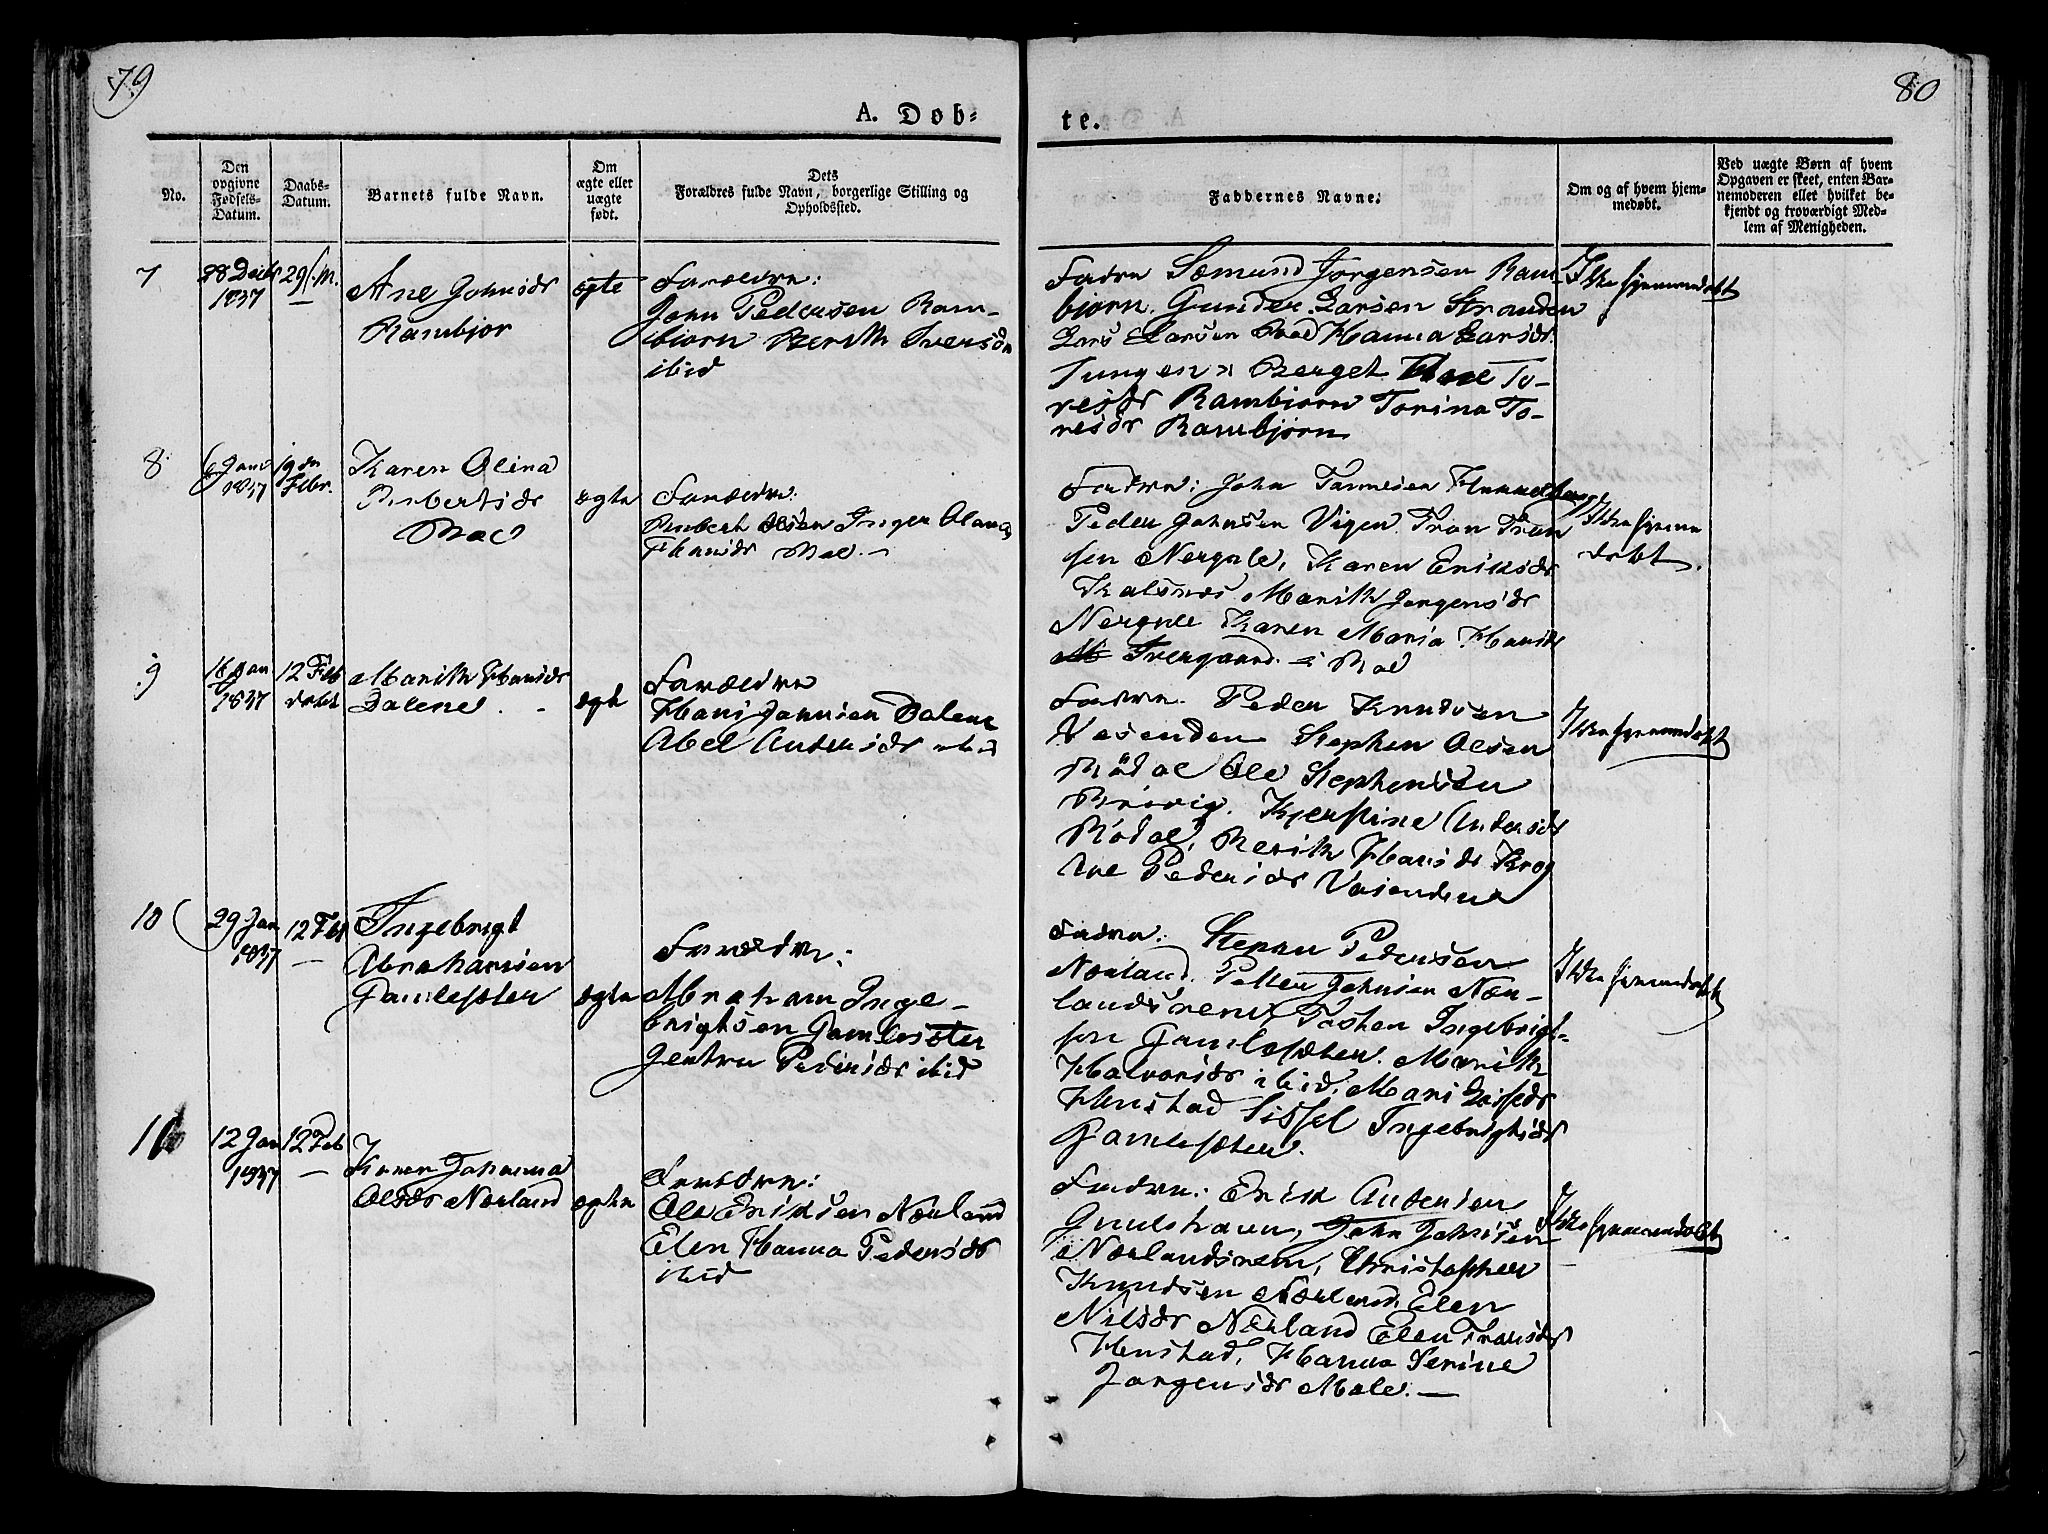 79
80
A. Døb-
te.
No.
Den
opgivne
Fødsels-
Datum.
Daabs-
Datum.
Barnets fulde Navn.
Om
ægte eller
uægte
født.
Dets
Forældres fulde Navn, borgerlige Stilling og
Opholdssted.
Faddernes Navne.
Om og af hvem hjem-
medøbt.
Ved uægte Børn af hvem
Opgaven er skeet, enten Bar-
nemoderen eller hvilket be-
kjendt og troværdigt Med-
lem af Menigheden.
7
28 Decbr
1837
29
Ane Johnsdr
Rambjor
ægte
Forældre:
John Pedersen Ram-
bjorn Berith Iversdr
ibid
Fadre Sæmund Jørgensen Ram-
bjorn. Gunder Larsen Stranden
Lars Larsen Hanna Larsdr
Tungen Berget Ane To-
resdr Rambjorn Torina To-
resdr Rambjorn
Ikke hjemmedøbt
8
6 Janv
1837
19de
Febr.
Karen Olina
Embertsdr
Moe
ægte
Forældre:
Embert Olsen Inger Olava
Hansdr Moe
Fadre: John
Peder Johnsen Vigen Tron Tron
sen Nergale, Karen Eriksdr
Kalsnes Marith Jørgensdr
Nergale Karen Maria Hansdr
Ivergaard Moe
Ikke hjemme
døbt.
9
16 Jan
1837
12 Feb
døbt
Marith Hansdr
Dalene
ægte
Forældre
Hans Johnsen Dalene
Abel Andersdr ibid
Fadre. Peder Knudsen
Vasenden Stephen Olsen
Mødal Ole Stephensen
Kjerstine Andersdr
Mødal, Berith Hansdr Krog
Ane Pedersdr Vasenden
Ikke hjemmedøbt
10
29 Jan
1837
12 Feb
Ingebrigt
Abrahamsen
Gamlesæter
ægte
Forældre:
Abraham Inge-
brigtsen Gamlesæter
Gjertru Pedersdr ibid
Fadre. Stephen Pedersen
Nærland. Petter Johnsen Nær-
landsrem Tosten Ingebrigt-
sen Gamlesæter. Marith
Halvorsdr ibid, Mari Lassedr
Henstad Sissel Ingebrigtsdr
Gamlesæter.
Ikke hjemmedøbt
11
12 Jan
1837
12 Feb
Karen Johanna
Olsdr Nærland
ægte
Forældre:
Ole Eriksen Nærland
Elen Hanna Pedersdr
ibid
Fadre: Erik Andersen
Gulehavn, John Johnsen
Nærlandsrem, Christopher
Knudsen Nærland. Elen
Nilsdr Nærland Elen Tronsdr
Henstad, Hanna Serine
Jørgensdr Male.
Ikke hjemmedøbt